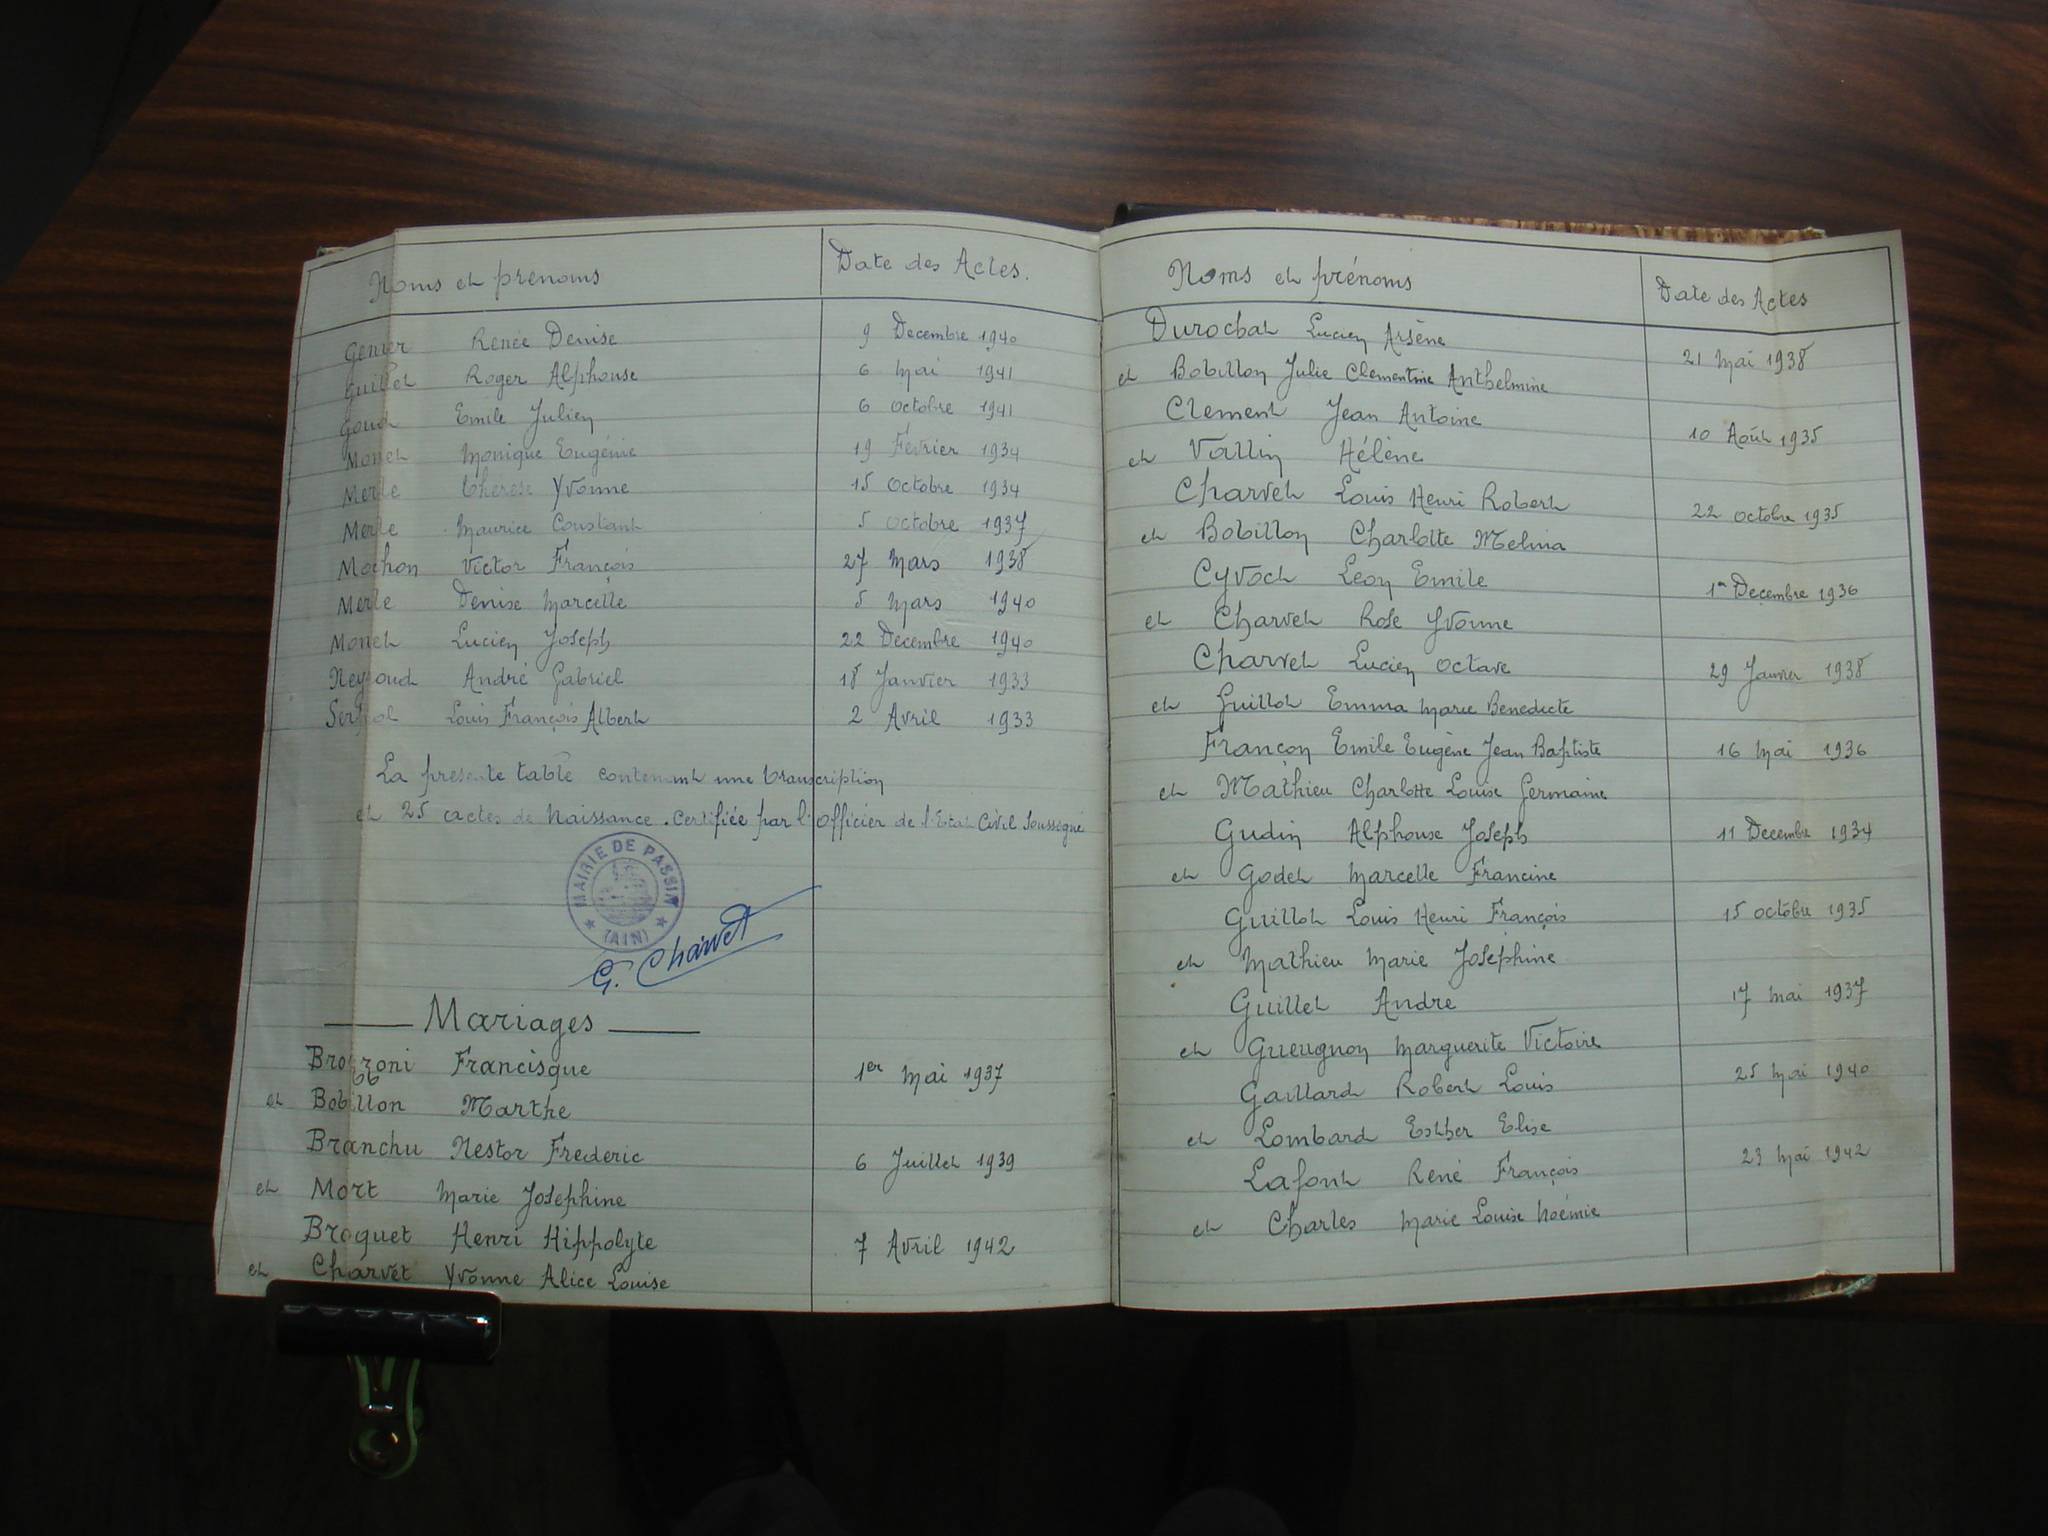 Noms et prenoms Date des Actes.
Genier Renée Denise 9 Decembre 1940
Guillet Roger Alphonse 6 Mai 1941
Goud Emile Julien 6 Octobre 1941
Monet Monique Eugénie 19 Février 1934
Merle Therese Yvonne 15 Octobre 1934
Merle Maurice Constant 5 octobre 1937
Mochon Victor François 27 Mars 1938
Merle Denise Marcelle 5 Mars 1940
Monet Lucien Joseph 22 Decembre 1940
Neyroud André Gabriel 18 Janvier 1933
Louis François Albert 2 Avril 1933
La presente table contenant une transcription
et 25 actes de Naissance. Certifiée par l'Officier de l'Etat Civil Soussigné
MAIRIE DE PASSIN
(AIN)
G. Charvet
Mariages
Francisque 1er Mai 1937
et Bobillon Marthe
Branchu Nestor Frederic 6 Juillet 1939
et Mort Marie Josephine
Broquet Henri Hippolyte 7 Avril 1942
et Charvet Yvonne Alice Louise
Noms et prénoms Date des Actes
Durochat Lucien Arsène 21 Mai 1938
et Bobillon Julie Clementine Anthelmine
Clement Jean Antoine 10 Août 1935
et Vallin Hélène
Charvet Louis Henri Robert 22 octobre 1935
et Bobillon Charlotte Melina
Cyvoct Leon Emile 1er Decembre 1936
et Charvet Rose Yvonne
Charvet Lucien Octave 29 Janvier 1938
et Guillot Emma Marie Benedicte
Françon Emile Eugène Jean Baptiste 16 Mai 1936
et Mathieu Charlotte Louise Germaine
Gudin Alphonse Joseph 11 Decembre 1934
et Godet Marcelle Francine
Guillot Louis Henri François 15 octobre 1935
et Mathieu Marie Joséphine
Guillet Andre 17 Mai 1937
et Gueugnon Marguerite Victoire
Gaillard Robert Louis 25 Mai 1940
et Lombard Esther Elise
Lafont René François 23 Mai 1942
et Charles Marie Louise Noémie